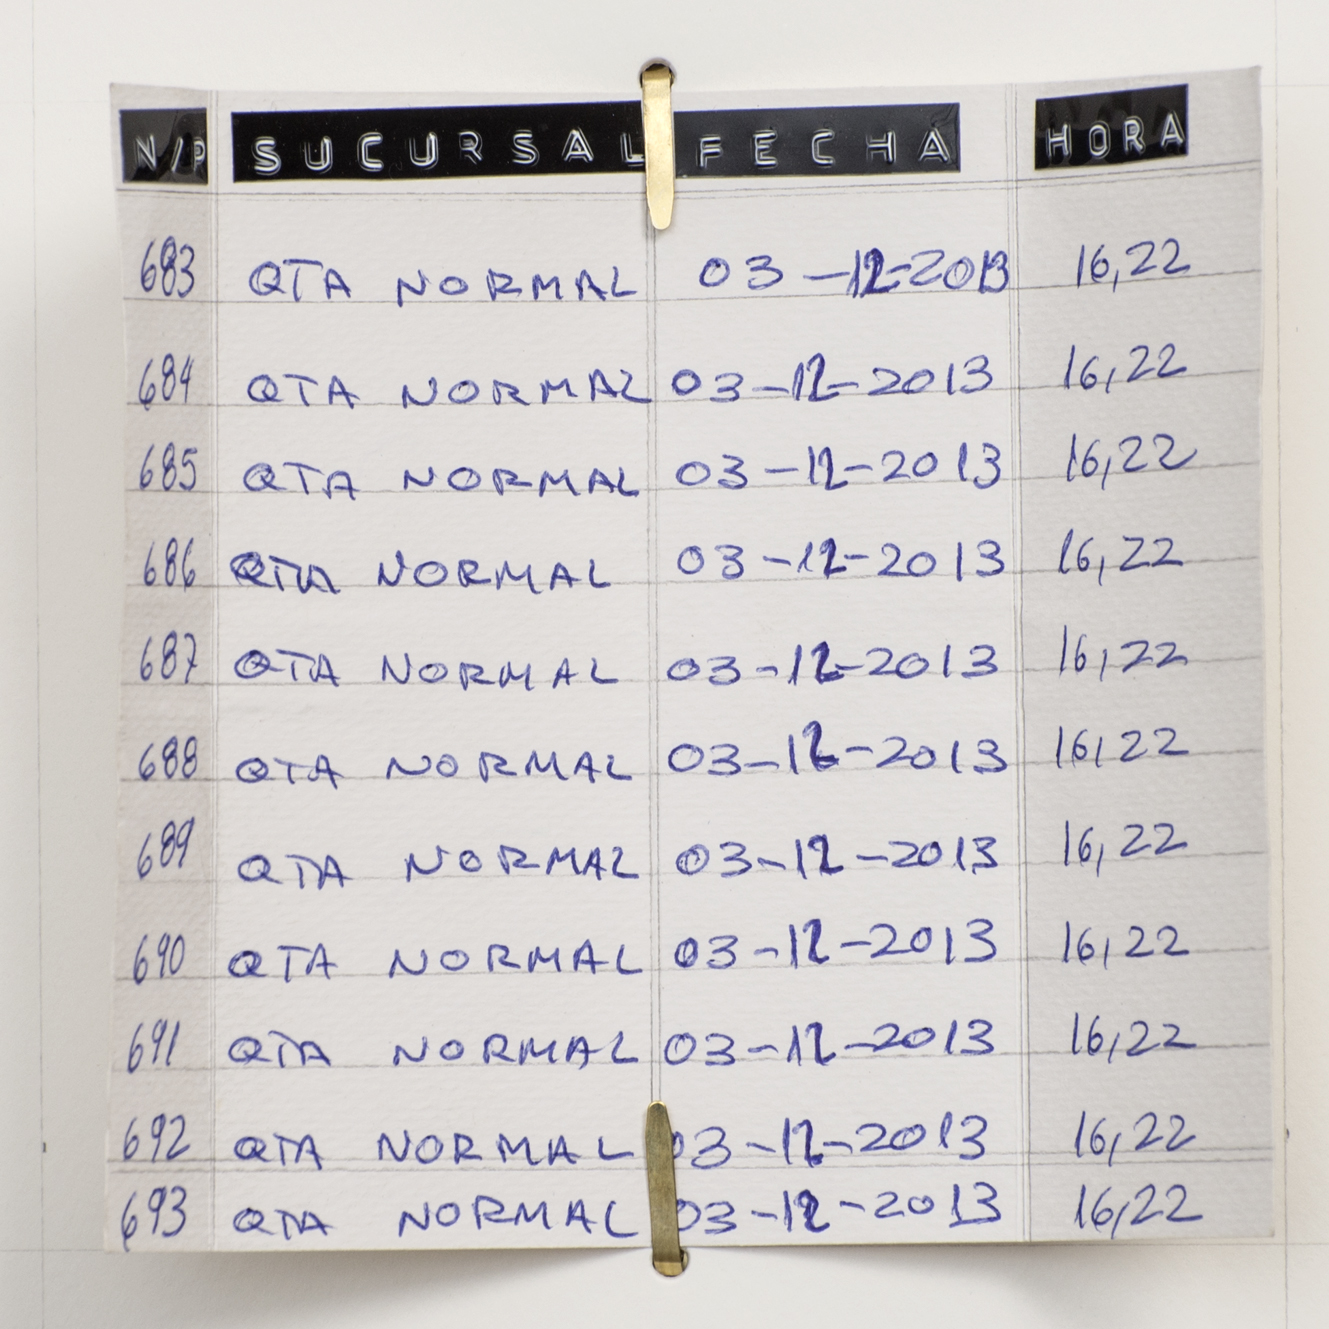 N/P SUCURSAL FECHA HORA
683 QTA NORMAL 03-12-2013 16,22
684 QTA NORMAL 03-12-2013 16,22
685 QTA NORMAL 03-12-2013 16,22
686 QTA NORMAL 03-12-2013 16,22
687 QTA NORMAL 03-12-2013 16,22
688 QTA NORMAL 03-12-2013 16,22
689 QTA NORMAL 03-12-2013 16,22
690 QTA NORMAL 03-12-2013 16,22
691 QTA NORMAL 03-12-2013 16,22
692 QTA NORMAL 03-12-2013 16,22
693 QTA NORMAL 03-12-2013 16,22